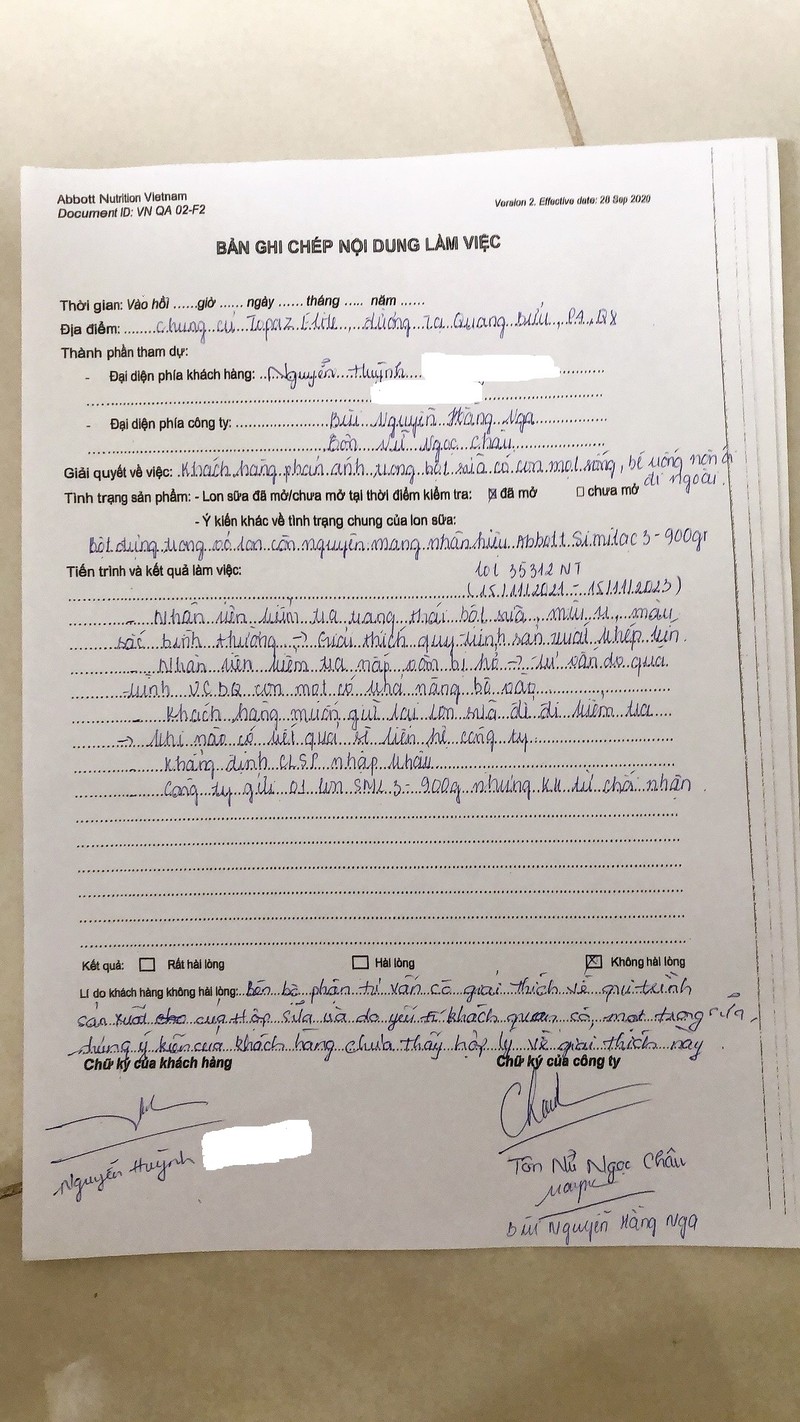 Abbott Nutrition Vietnam
Document ID: VN QA 02-F2
Version 2. Effective date: 28 Sep 2020
BẢN GHI CHÉP NỘI DUNG LÀM VIỆC
Thời gian: Vào hồi ......giờ ...... ngày ...... tháng ..... năm ......
Địa điểm: chung cư Topaz Elite, đường Tạ Quang Bửu, P4, Q8
Thành phần tham dự:
- Đại diện phía khách hàng: Nguyễn Huỳnh
- Đại diện phía công ty: Bùi Nguyễn Hằng Nga
Tôn Nữ Ngọc Châu
Giải quyết về việc: Khách hàng phản ánh trong bột sữa có con mọt sống, bé uống nôn ói
đi ngoài.
Tình trạng sản phẩm: - Lon sữa đã mở/chưa mở tại thời điểm kiểm tra: ☒ đã mở ☐ chưa mở
- Ý kiến khác về tình trạng chung của lon sữa:
Bột đựng trong vỏ lon còn nguyên mang nhãn hiệu Abbott Similac 3 - 900gr
Tiến trình và kết quả làm việc: lot 35312 NT
(15/11/2021 - 15/11/2023)
- Nhân viên kiểm tra trạng thái bột sữa, mùi vị, màu
sắc bình thường → Giải thích quy trình sản xuất khép kín.
- Nhân viên kiểm tra nắp bị hở → tư vấn do quá
trình VC, BQ con mọt có khả năng bò vào
- Khách hàng muốn giữ lại lon sữa để đi kiểm tra
→ khi nào có kết quả sẽ liên hệ công ty.
- Khẳng định CLSP nhập khẩu
- Công ty gửi 01 lon SML 3 - 900g nhưng KH từ chối nhận.
Kết quả: ☐ Rất hài lòng ☐ Hài lòng ☒ Không hài lòng
Lí do khách hàng không hài lòng: Bên bộ phận tư vấn có giải thích về qui trình
sản xuất của hộp sữa và do yếu tố khách quan có mọt trong sữa,
nhưng ý kiến của khách hàng chưa thấy hợp lý về giải thích này.
Chữ ký của khách hàng Chữ ký của công ty
Nguyễn Huỳnh
Tôn Nữ Ngọc Châu
Bùi Nguyễn Hằng Nga